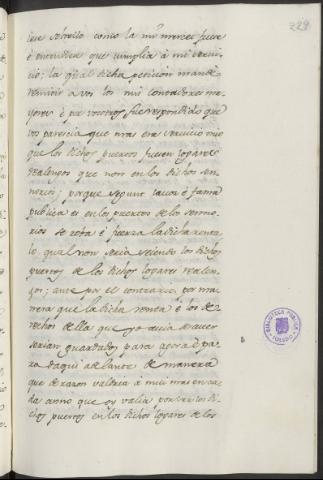 229
sobre ello como la mi merced fuere
é entendiere que cumplia á mi servi-
cio; la qual dicha peticion mandé
remitir a vos los mis contadores ma-
yores é por vosotros fue respondido que
vos parescia que mas era servicio mio
que los dichos puertos fuesen logares
realengos que non en los dichos sen-
norios; porque segunt la voz é fama
publica es en los puertos de los senno-
rios se roba é fuerza la dicha renta
lo qual non seria seiendo los dichos
puertos de los dichos logares realen-
gos; ante por el contrario por ma-
nera que la dicha renta é los de-
rechos della que yo avia de aver
serian guardados para agora é pa-
ra daqui adelante de manera
que de razon valdria á mi mas en ca-
da anno que oy valia por ser los di-
chos puertos en los dichos logares de los
BIBLIOTECA PUBLICA
TOLEDO